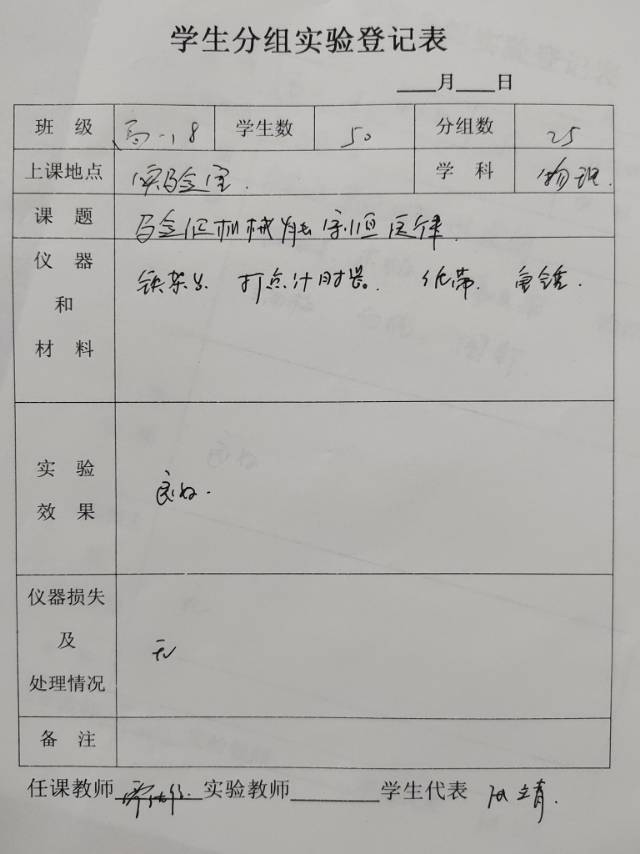 学生分组实验登记表
___月___日
班 级 高一、8 学生数 50 分组数 25
上课地点 实验室. 学 科 物理.
课 题 验证机械能守恒定律.
仪 器 铁架台 打点计时器. 纸带. 重锤.
和
材 料
实 验
良好.
效 果
仪器损失
及 无
处理情况
备 注
任课教师 实验教师________学生代表